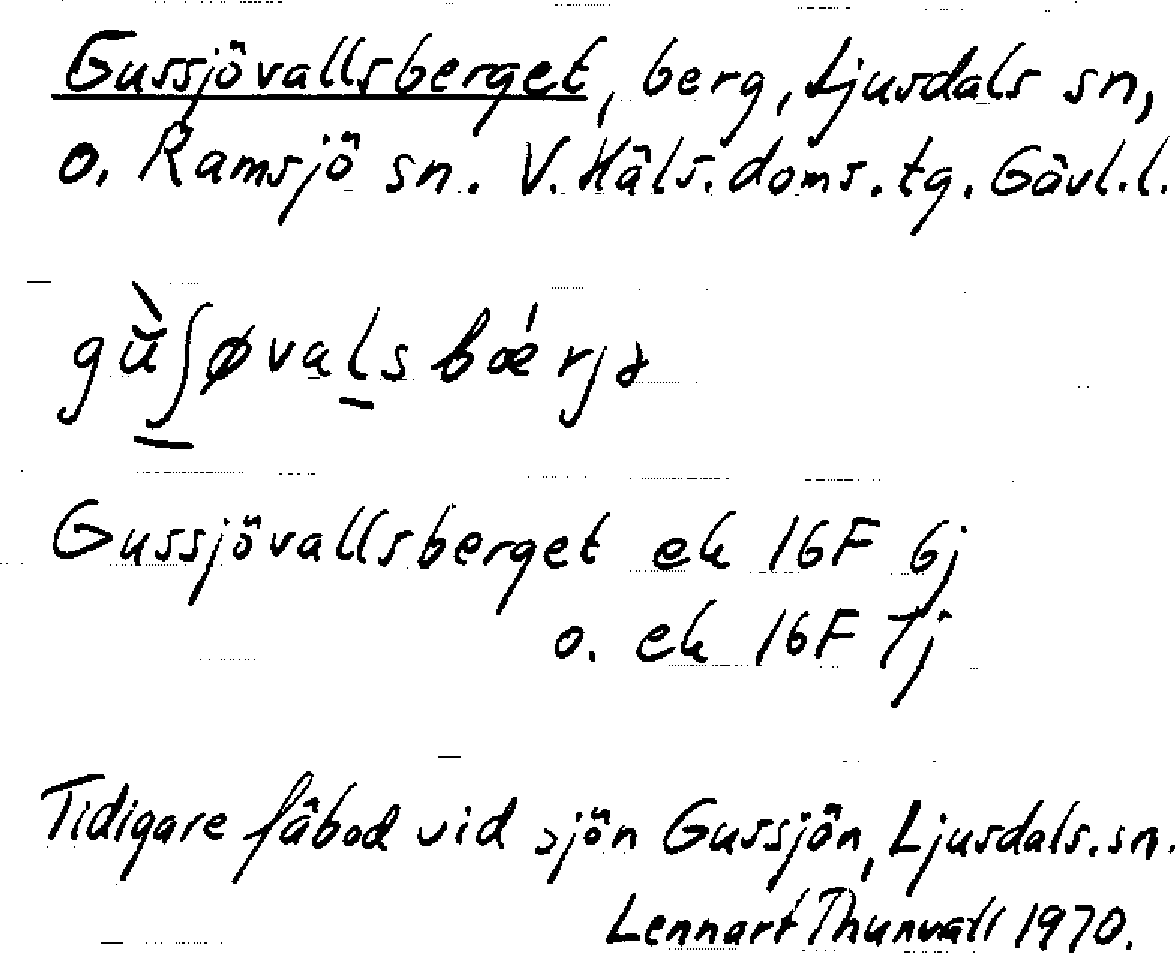 Gussjövallsberget, berg, Ljusdals sn,
o. Ramsjö sn. V. Häls. doms. tg. Gävl. l.
gùʃøvals bǽrjə
Gussjövallsberget ek 16F 6j
o. ek 16F 7j
Tidigare fäbod vid sjön Gussjön, Ljusdals. sn.
Lennart Thunvall 1970.